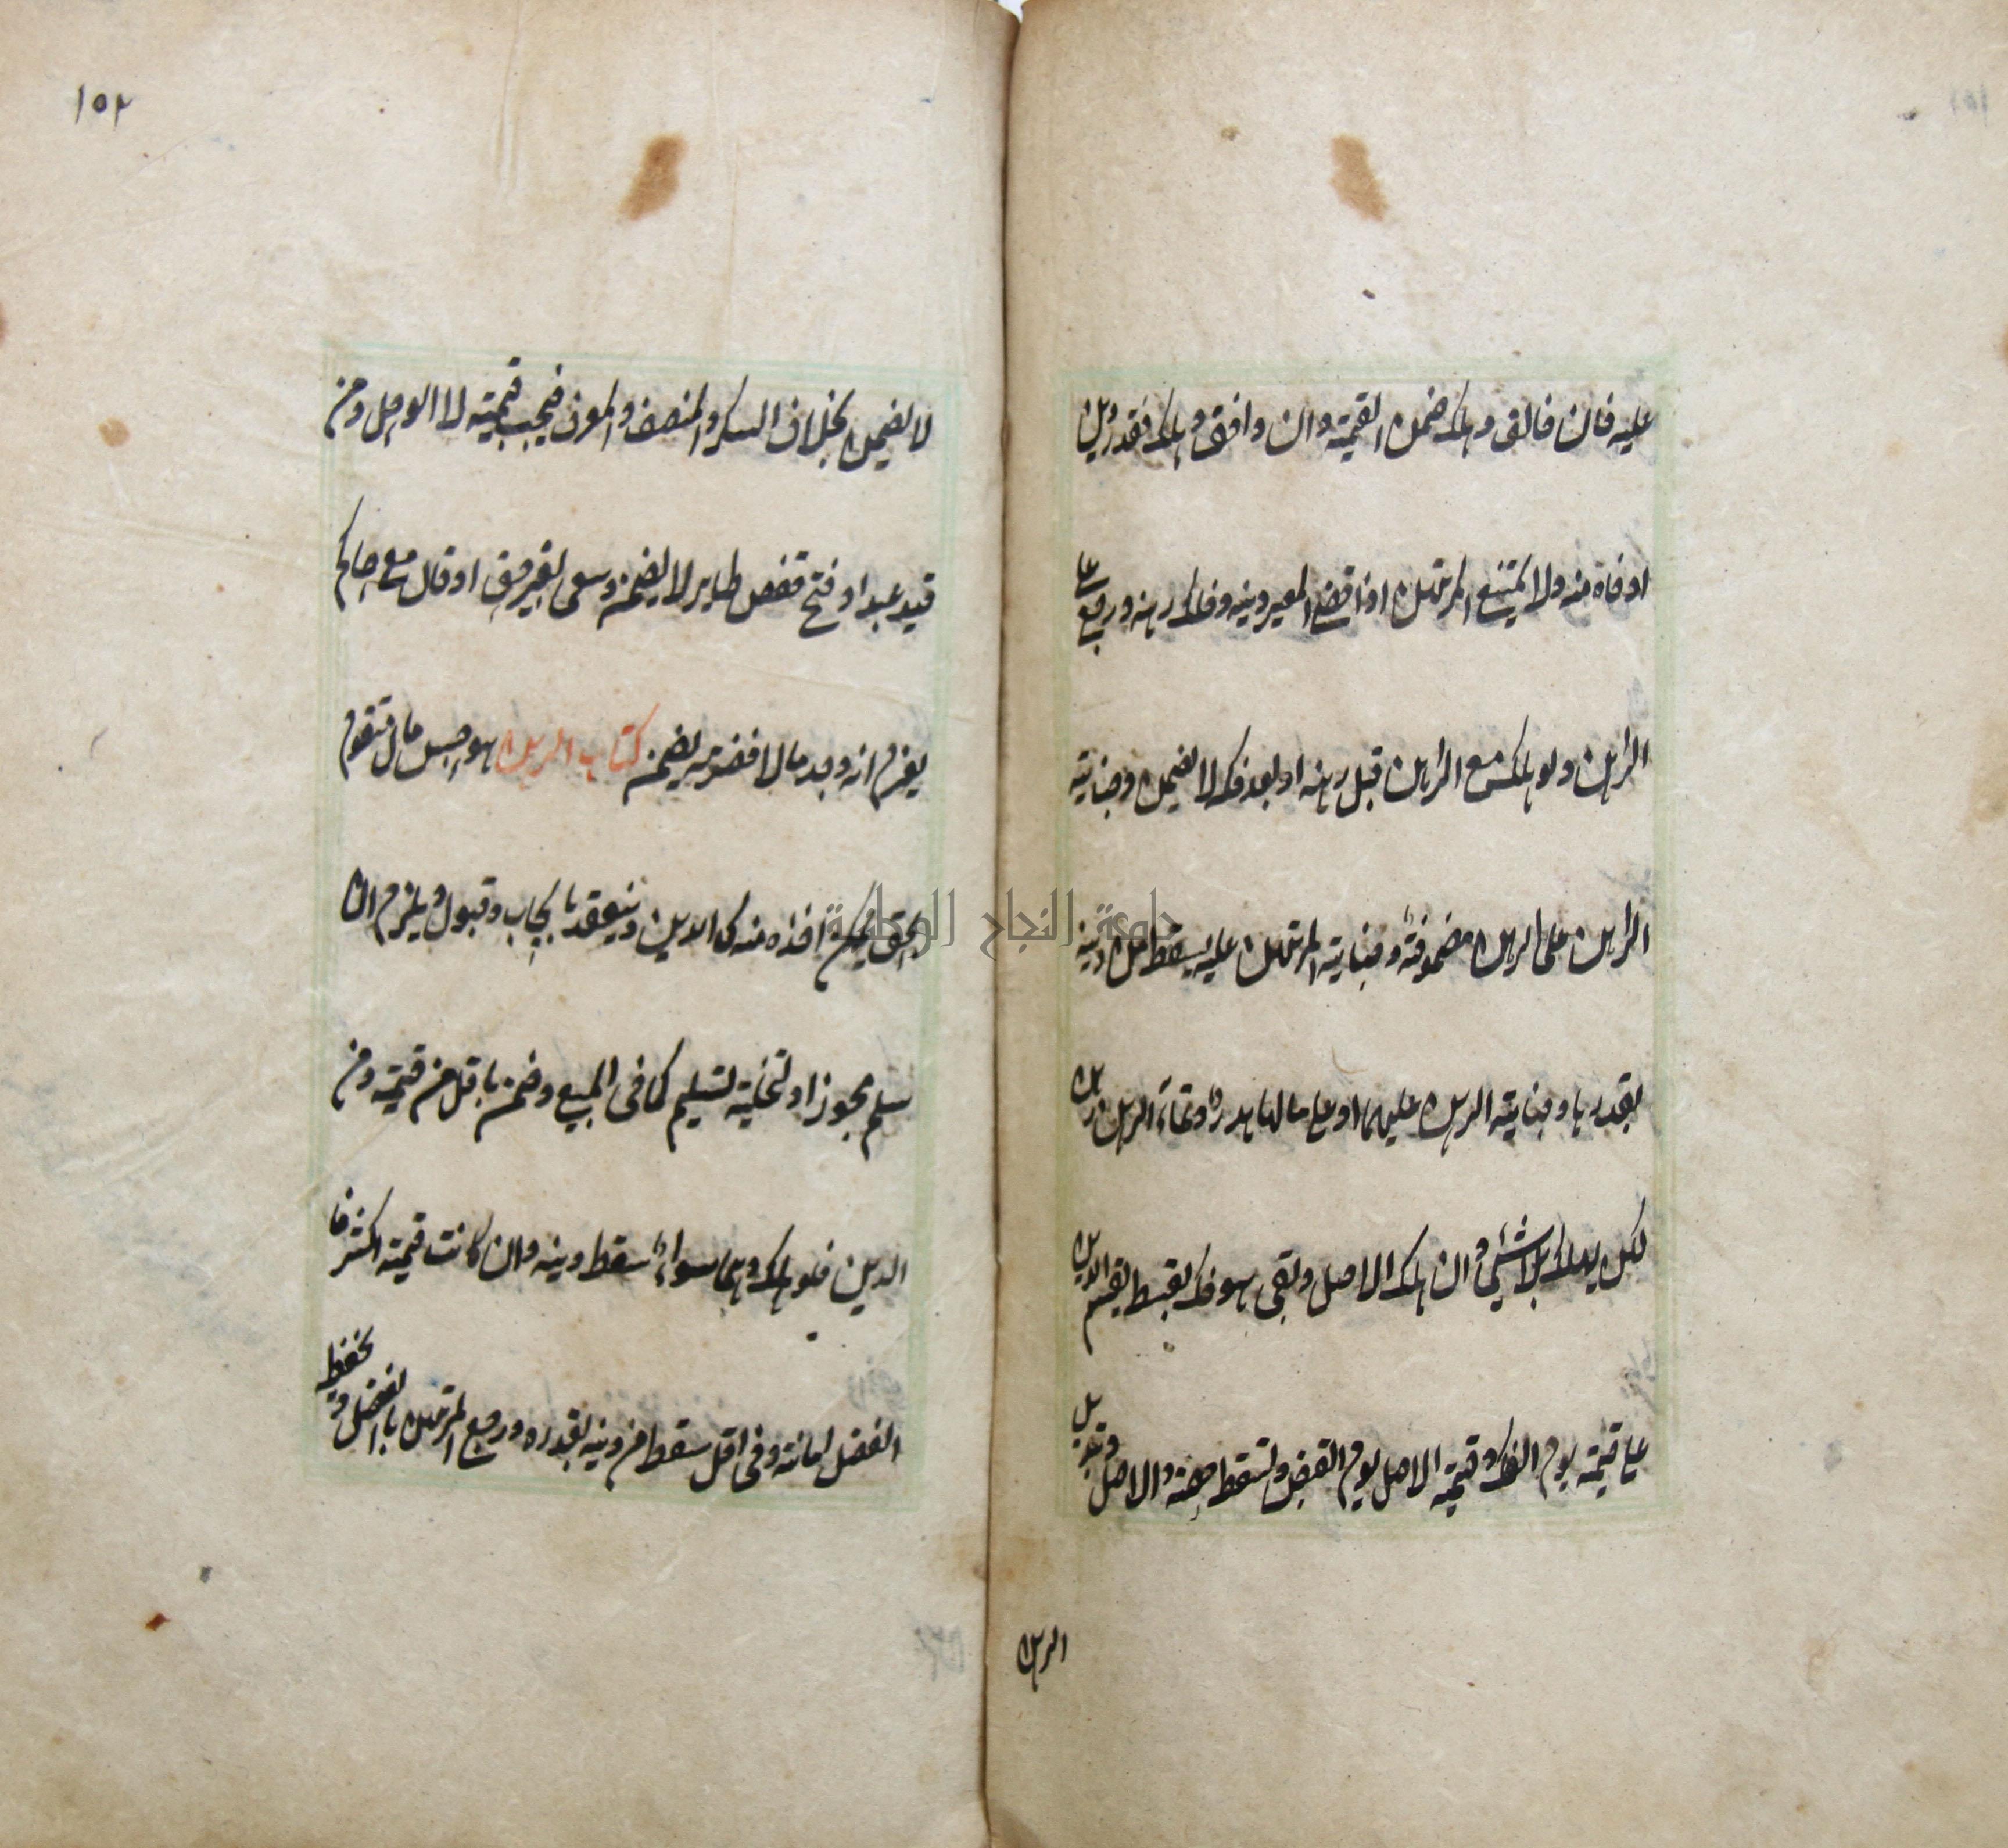 عليه فان خالف وهلك ضمن القيمة وان وافق وهلك فقد دين
اوفاه منه ولا يمتنع المرتهن اذا قضى المعير دينه وفك رهنه ورجع على
الراهن ولو هلكس مع الراهن قبل رهنه او بعد فكه لا يضمن وجناية
الراهن على الرهن مضمونة وجناية المرتهن عليه يسقط من دينه
بقدرها وجناية الرهن عليهما او على مالهما هدر ونماء الرهن رهن
لكن يهلك بلا شئ وان هلك الاصل وبقى هو فك بقسط يقسم الدين
على قيمته يوم الفك وقيمة الاصل يوم القبض وتسقط حصة الاصل وتبديل
الرهن
١٥٢
لا يضمن بخلاف السكر والمنصف والمعزف فيجب قيمته لا لهو ومن
قيد عبد او فتح قفص طاير لا يضمن وسعى بغير حق او قال مع حاكم
يغرم انه وجد مالا فغرمه يضمن كتاب الرهن هو حبس مال متقوم
بحق يمكن اخذه منه كالدين وينعقد بايجاب وقبول ويلزم ان
سلم محوزا والتخلية تسليم كما فى المبيع وضمن باقل من قيمته ومن
الدين فلو هلك وهما سواء سقط دينه وان كانت قيمته اكثر فا
الفضل امانة وفى اقل سقط من دينه بقدره ورجع المرتهن بالفضل وتحفظ
جامعة النجاح الوطنية